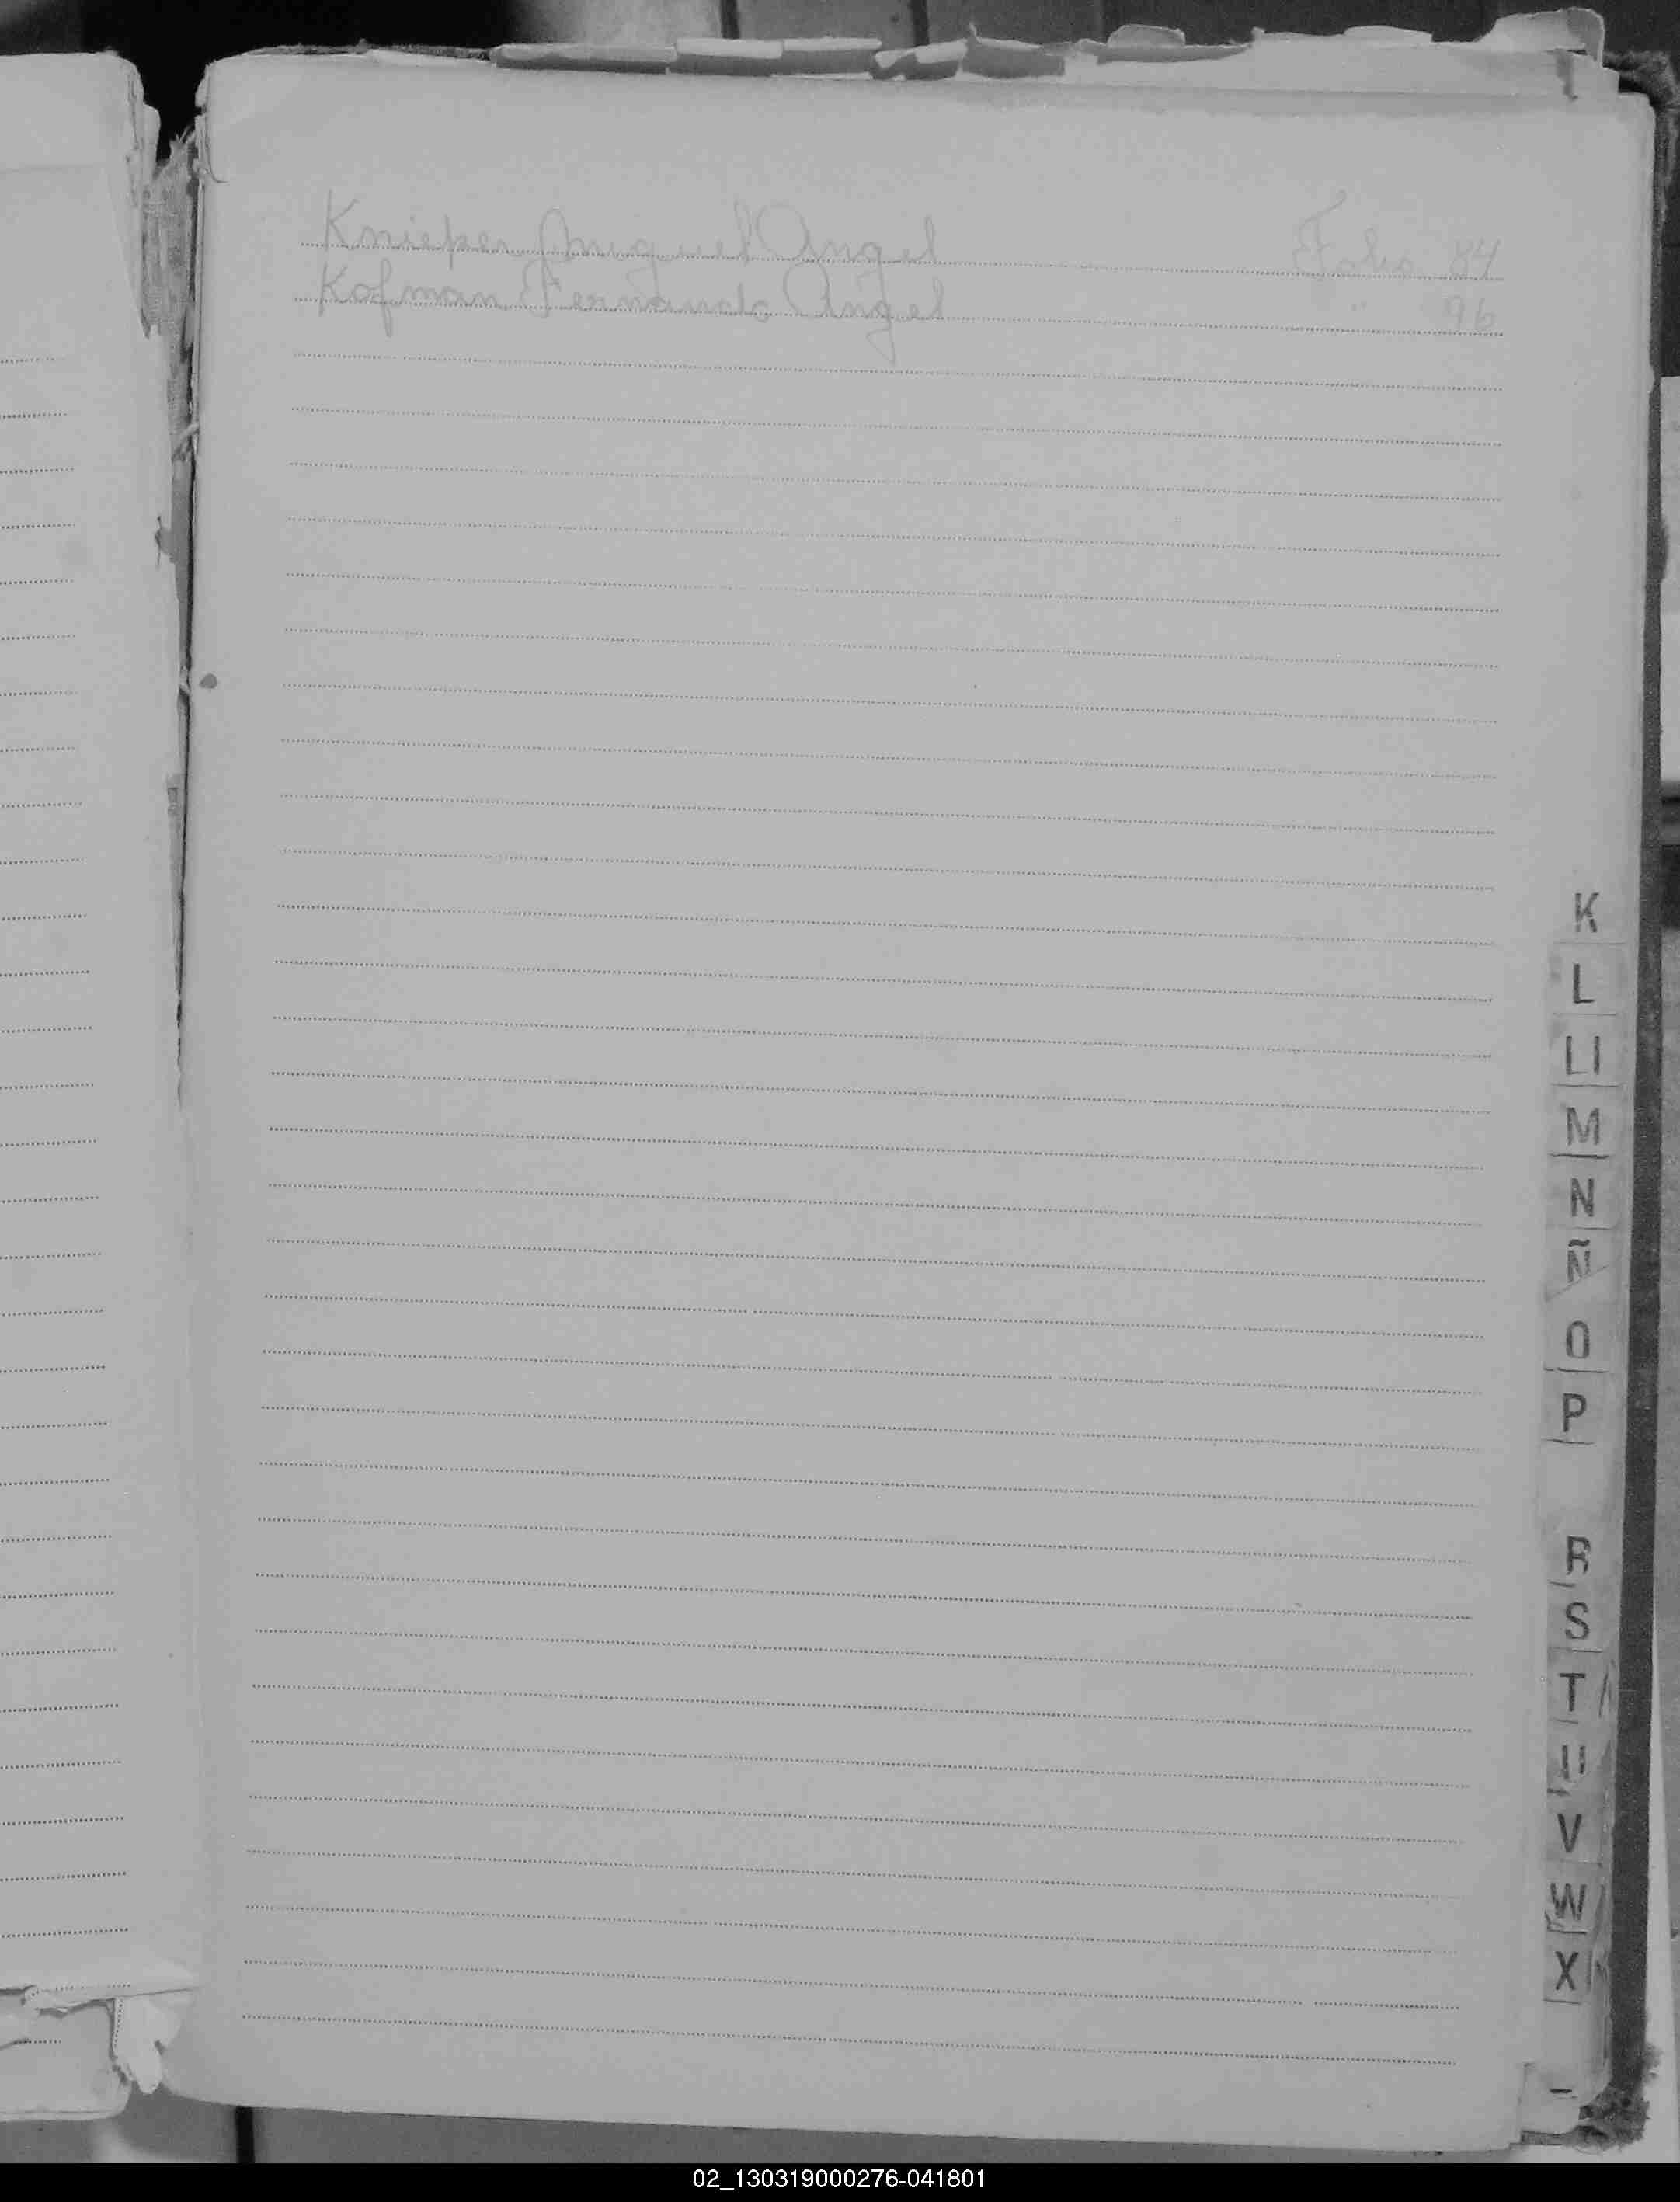 Knieper Miguel Angel Folio 84
Kofman Fernando Angel " 96
K
L
Ll
M
N
Ñ
O
P
R
S
T
U
V
W
X
02_130319000276-041801